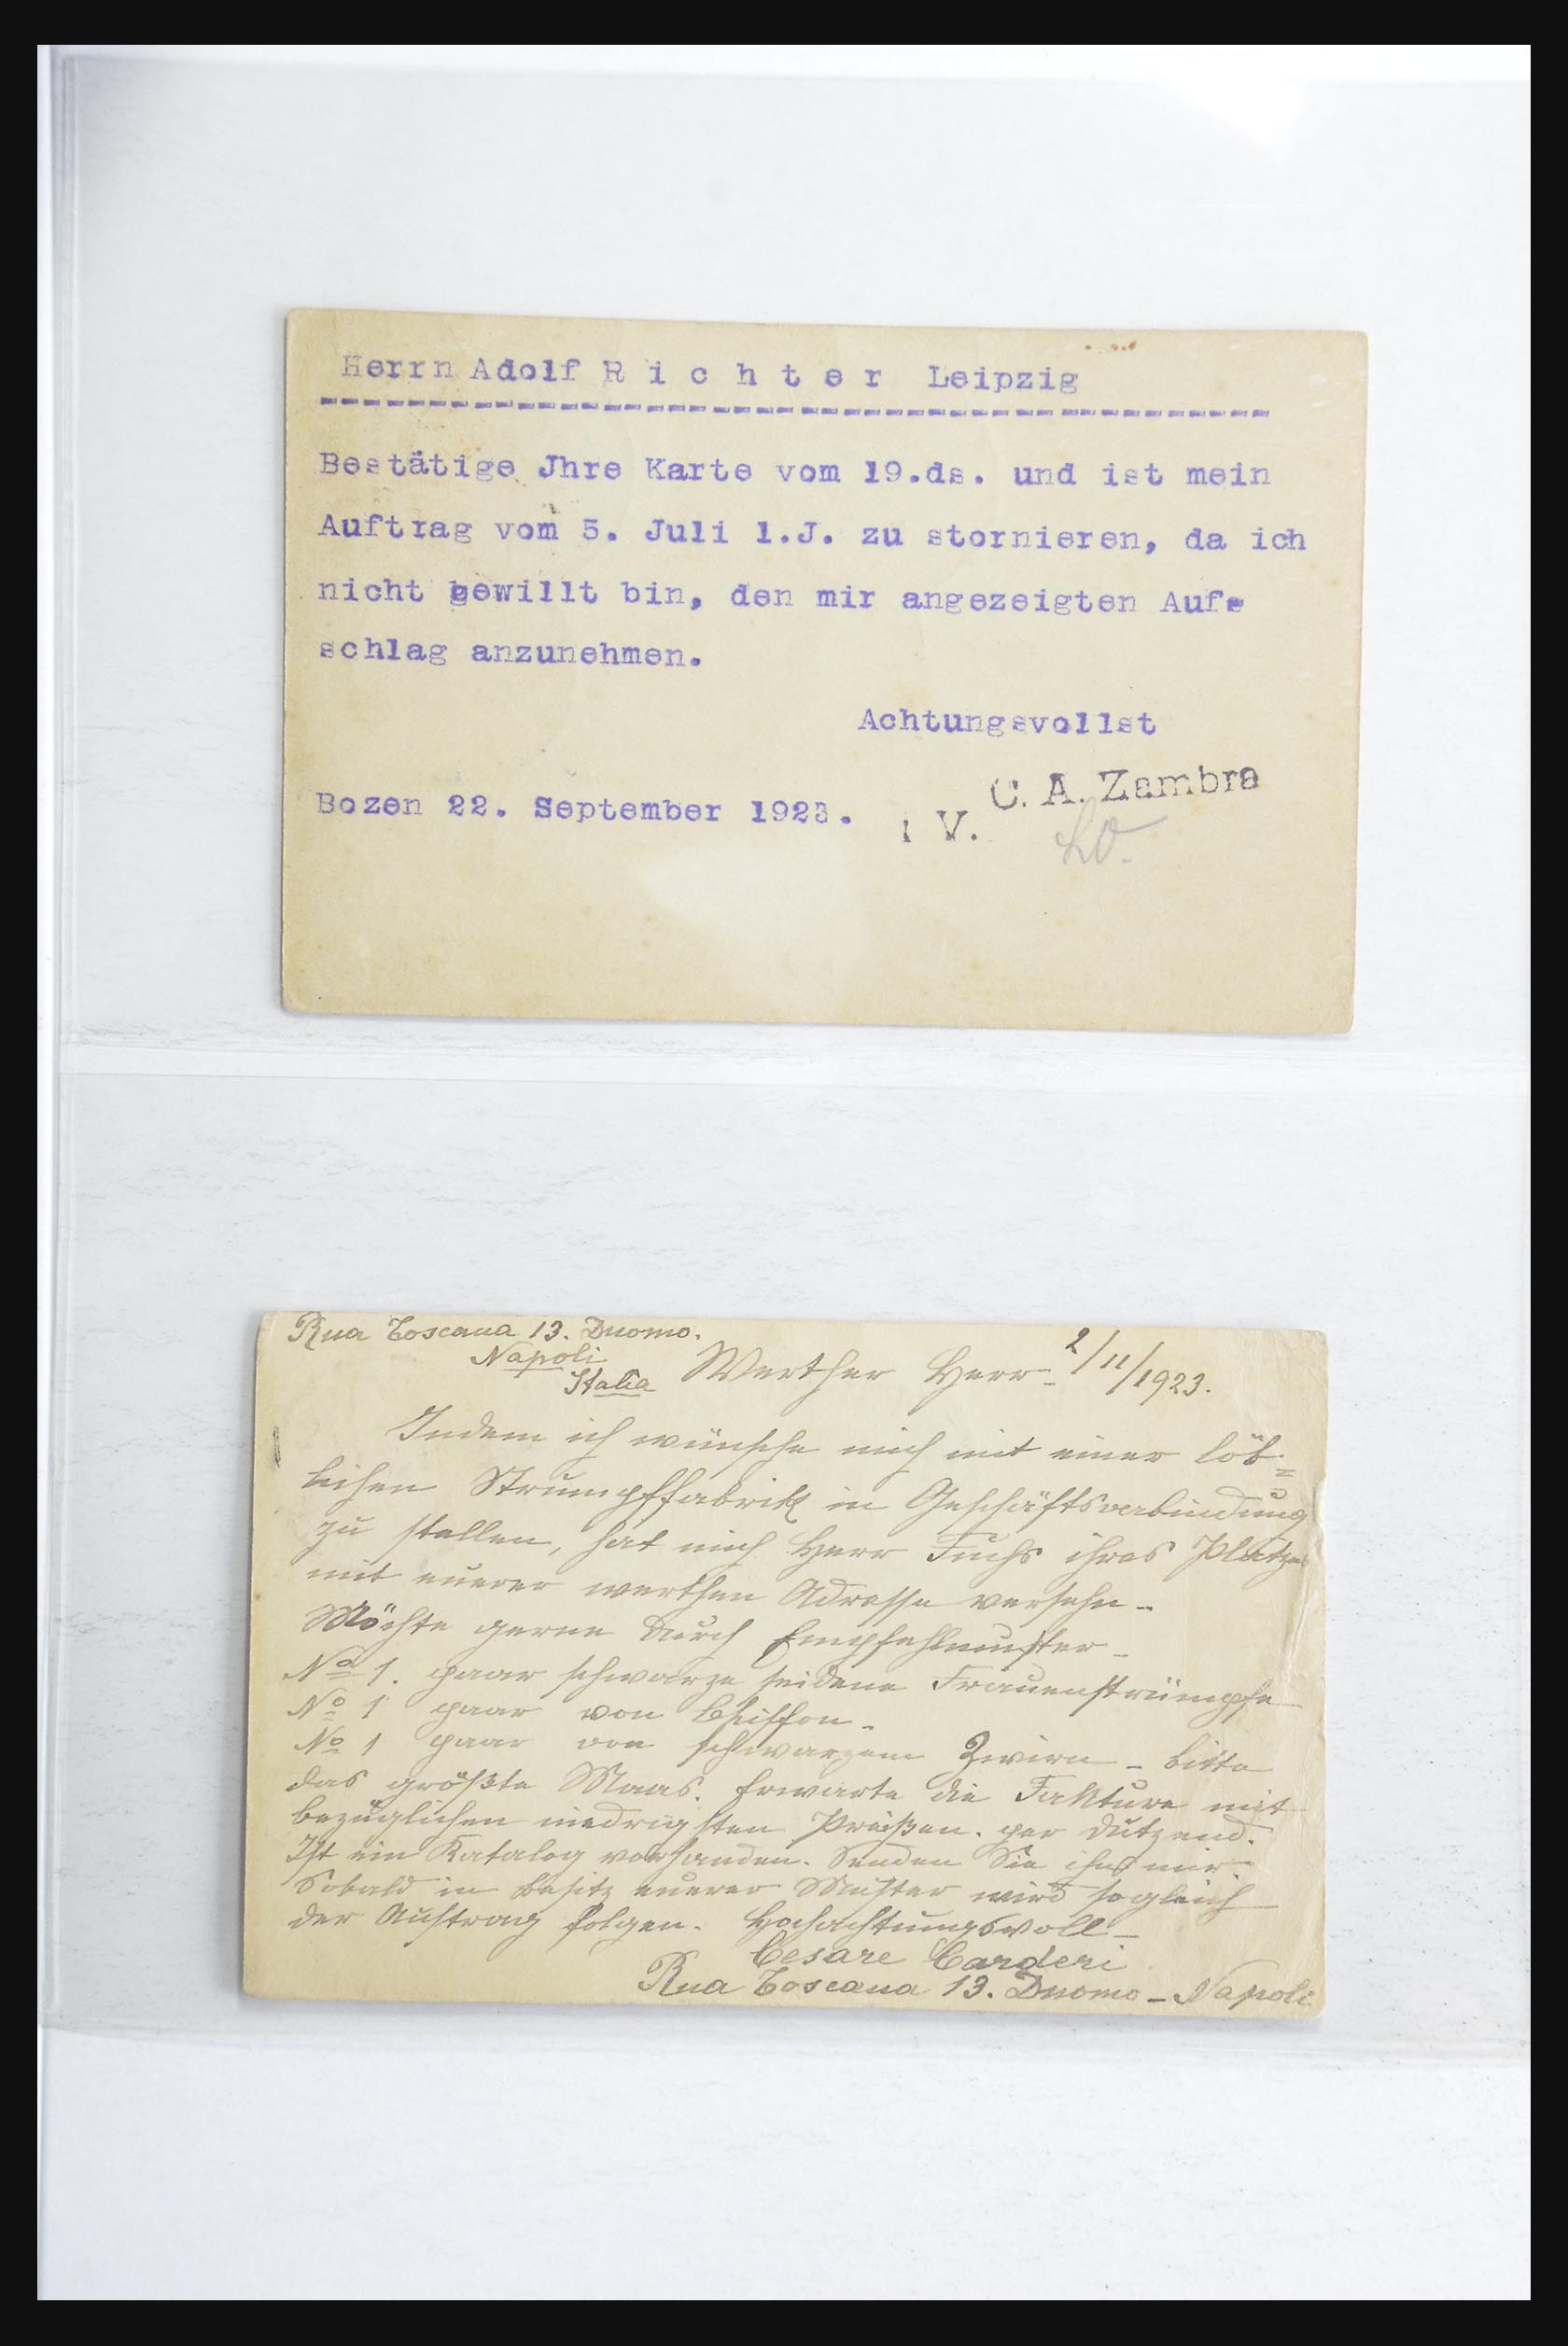 Herrn Adolf R i c h t e r Leipzig
Bestätige Jhre Karte vom 19.ds. und ist mein
Auftrag vom 5. Juli l.J. zu stornieren, da ich
nicht gewillt bin, den mir angezeigten Auf-
schlag anzunehmen.
Achtungsvollst
C. A. Zambra
Bozen 22. September 1923.
i V.
Rua Toscana 13. Duomo.
Napoli
Italia
Werther Herr - 2/11/1923.
Indem ich wünsche mich mit einer löb=
lichen Strumpffabrik in Geschäftsverbindung
zu stellen, hat mich Herr Fuchs ihres Platzes
mit euerer werthen Adresse versehn -
Möchte gerne durch Empfehlmuster -
No 1. paar schwarze seidene Frauenstrümpfe
No 1 paar von Chiffon -
No 1 paar von schwarzem Zwirn - bitte
das größte Maas. Erwarte die Faktura mit
bezüglichen niedrigsten Preißen. per Dutzend.
Ist ein Katalog vorhanden. Senden Sie ihn mir.
Sobald in Besitz euerer Muster wird sogleich
der Auftrag folgen. Hochachtungsvoll -
Cesare Carderi
Rua Toscana 13. Duomo - Napoli